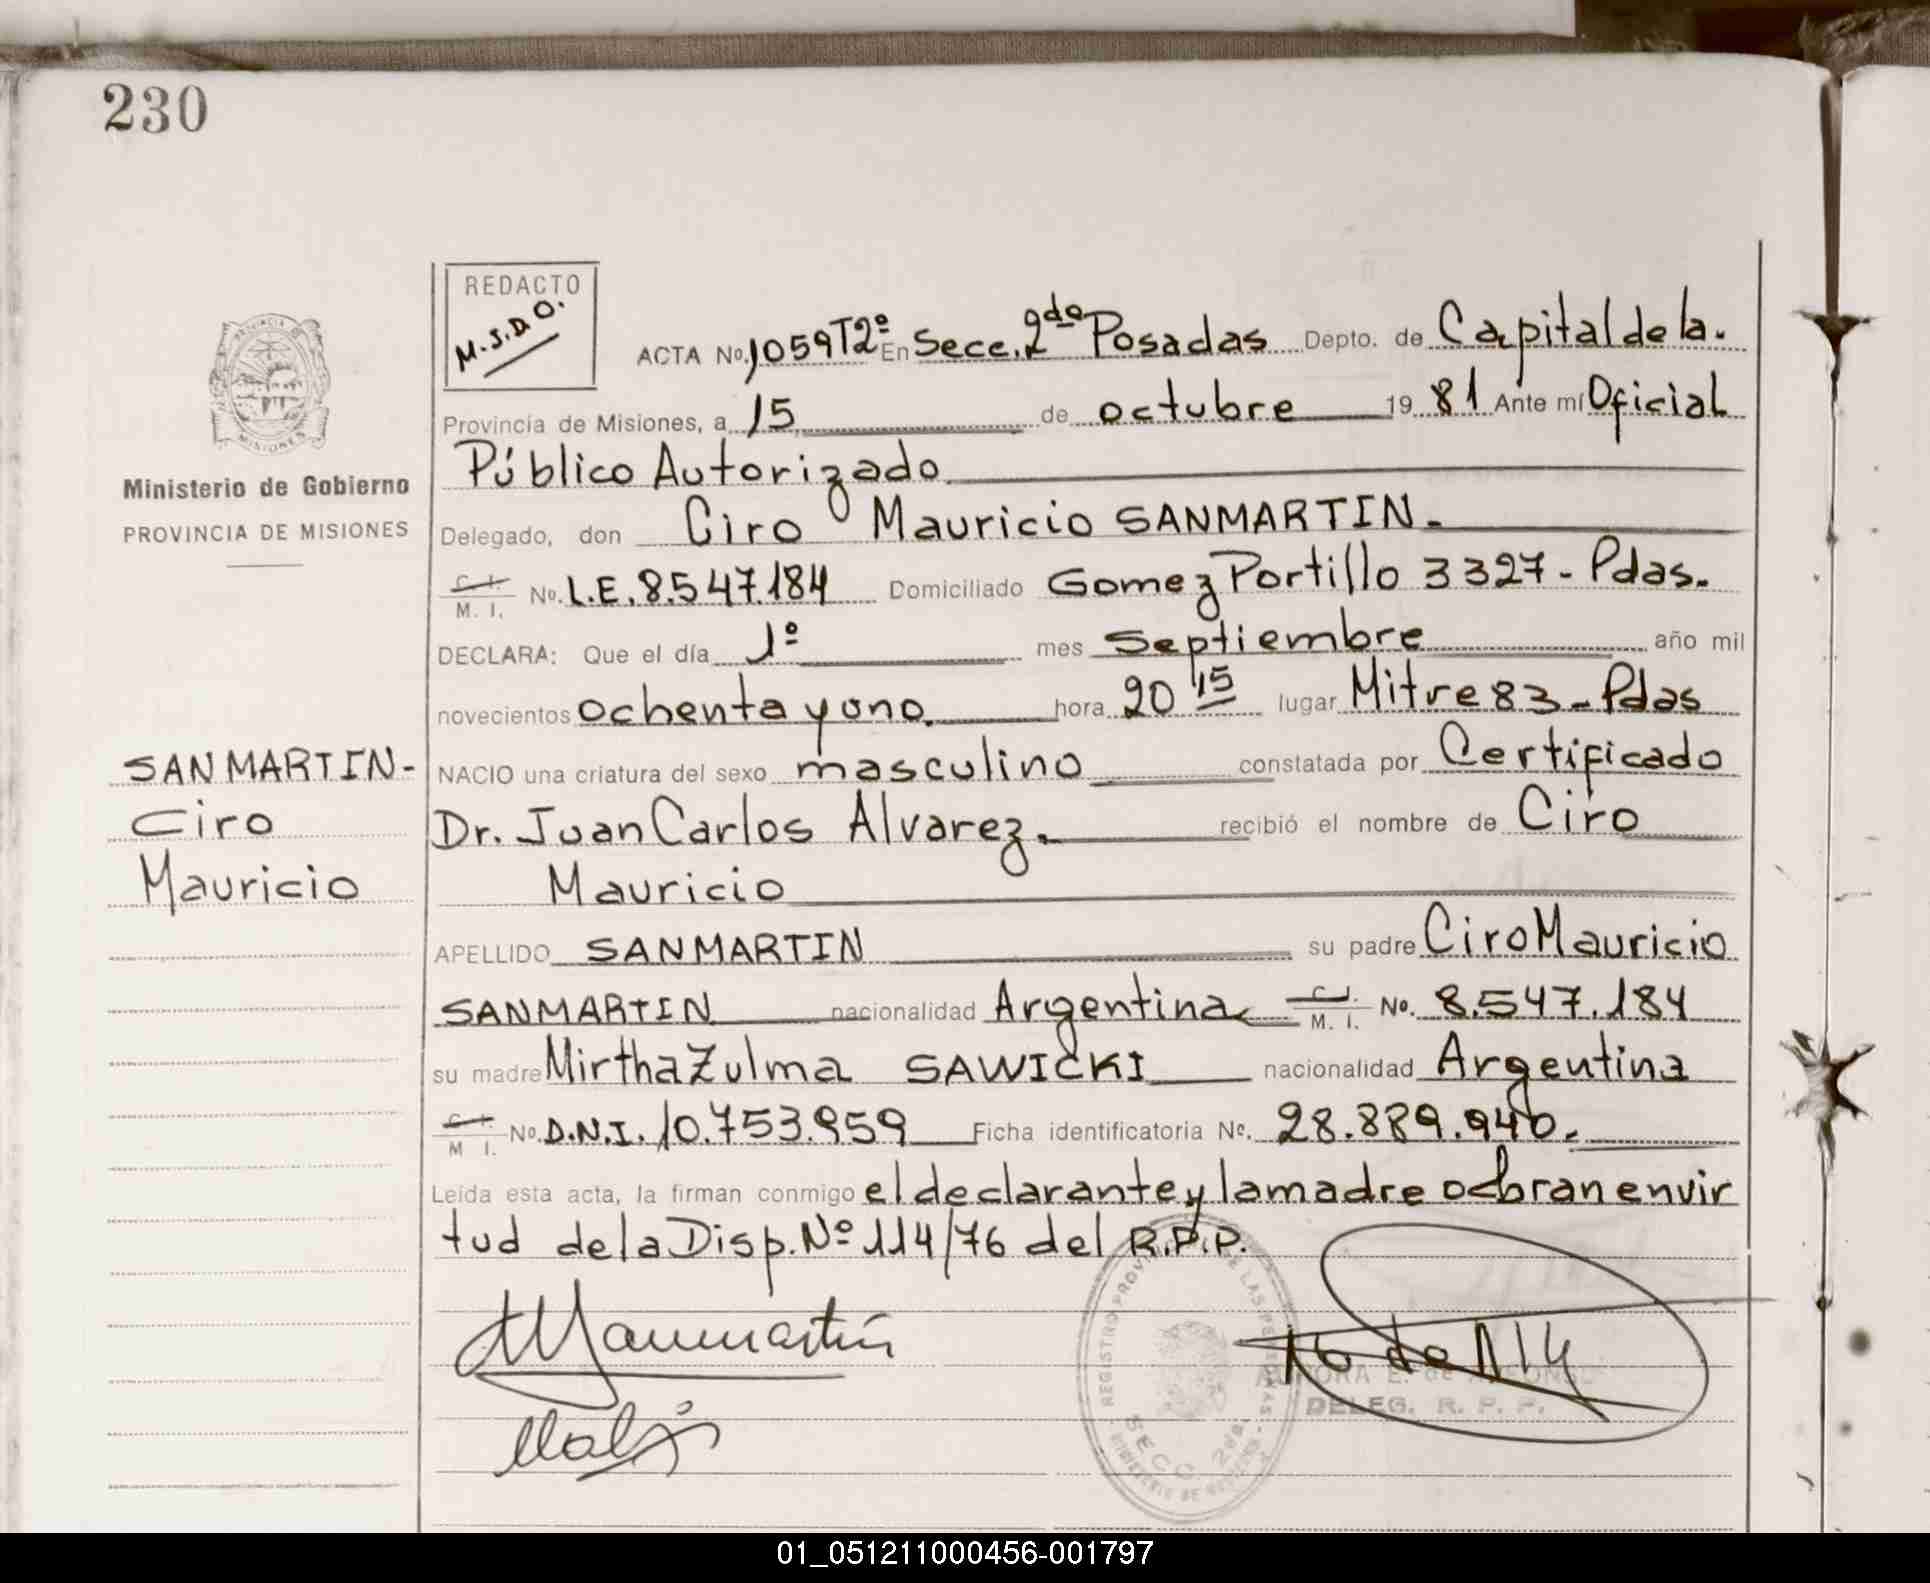 230
REDACTO
M.S.D.O.
ACTA No. 1059 T2º En Secc. 2da Posadas Depto. de Capital de la.
Provincia de Misiones, a 15 de octubre 19 81 Ante mí Oficial
Público Autorizado
Ministerio de Gobierno
PROVINCIA DE MISIONES
Delegado, don Ciro Mauricio SANMARTIN.
C. I. M. I. No. L.E. 8.547.184 Domiciliado Gomez Portillo 3327 - Pdas.
DECLARA: Que el día 1º mes Septiembre año mil
novecientos ochenta y uno. hora 20 15 lugar Mitre 83 - Pdas
SANMARTIN-
Ciro
Mauricio
NACIO una criatura del sexo masculino constatada por Certificado
Dr. Juan Carlos Alvarez. recibió el nombre de Ciro
Mauricio
APELLIDO SANMARTIN su padre Ciro Mauricio
SANMARTIN nacionalidad Argentina C. I. M. I. No. 8.547.184
su madre Mirtha Zulma SAWICKI nacionalidad Argentina
C. I. M I. No. D.N.I. 10.753.959 Ficha identificatoria No. 28.889.940.
Leída esta acta, la firman conmigo el declarante y la madre obran en vir
tud de la Disp. Nº 114/76 del R.P.P.
SECC. 2da.
DELEG. R. P. P.
01_051211000456-001797